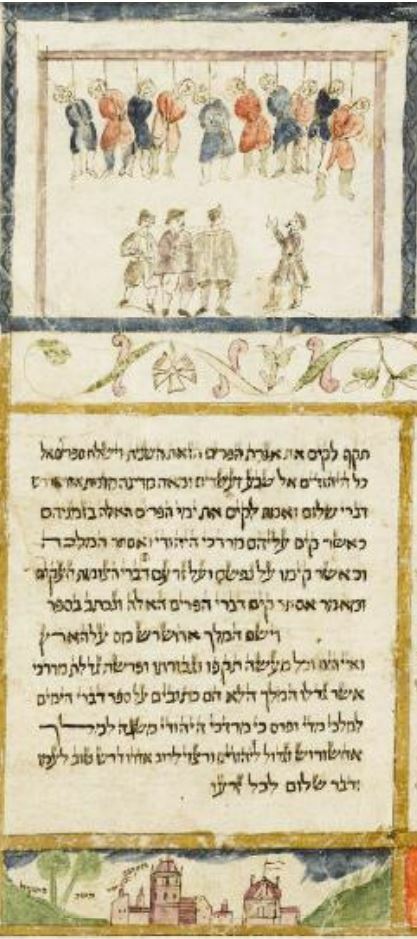 תקף לקים את אגרת הפרים הזאת השנית וישלח ספרים אל
כל היהודים אל שבע ועשרים ומאה מדינה מלכות
דברי שלום ואמת לקים את ימי הפרים האלה בזמניהם
כאשר קים עליהם מרדכי היהודי ואסתר המלכה
וכאשר קימו על נפשם ועל זרעם דברי הצומות וזעקתם
ומאמר אסתר קים דברי הפרים האלה ונכתב בספר
וישם המלך אחשרש מס על הארץ
ואיי הים וכל מעשה תקפו וגבורתו ופרשת גדלת מרדכי
אשר גדלו המלך הלא הם כתובים על ספר דברי הימים
למלכי מדי ופרס כי מרדכי היהודי משנה למלך
אחשורוש וגדול ליהודים ורצוי לרוב אחיו דרש טוב לעמו
ודבר שלום לכל זרעו